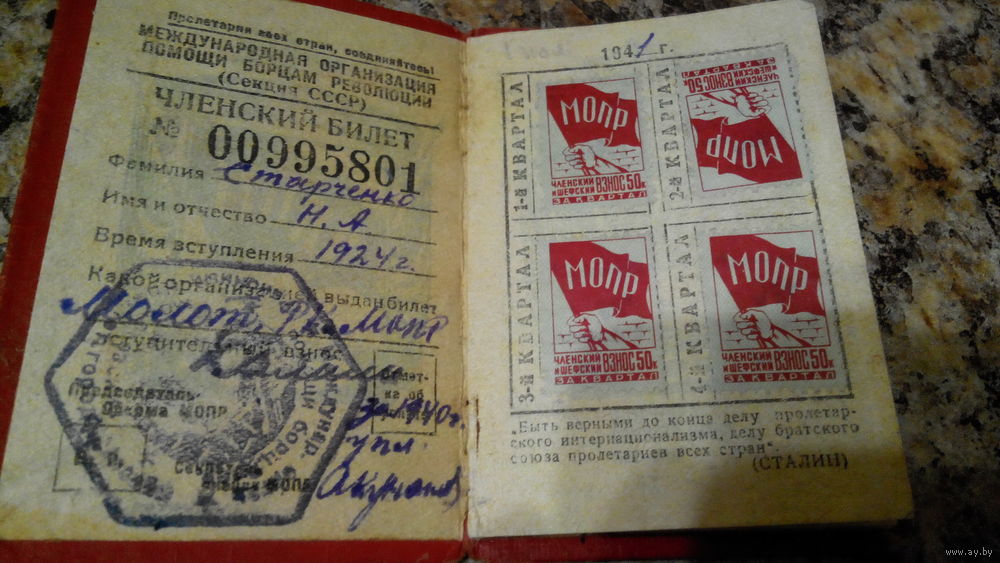 Пролетарии всех стран, соединяйтесь!
МЕЖДУНАРОДНАЯ ОРГАНИЗАЦИЯ
ПОМОЩИ БОРЦАМ РЕВОЛЮЦИИ
(Секция СССР)
ЧЛЕНСКИЙ БИЛЕТ
№ 00995801
Фамилия Старченко
Имя и отчество Н. А.
Время вступления 1924 г.
Какой организацией выдан билет
Молот. МОПР
вступительный взнос
Председатель
Окркома МОПР
за 1940 г.
упл.
Секретарь
МОПР
1941 г.
1-й КВАРТАЛ
МОПР
ЧЛЕНСКИЙ
И ШЕФСКИЙ ВЗНОС 50к
ЗА КВАРТАЛ
2-й КВАРТАЛ
МОПР
ЧЛЕНСКИЙ
И ШЕФСКИЙ ВЗНОС 50к
ЗА КВАРТАЛ
3-й КВАРТАЛ
МОПР
ЧЛЕНСКИЙ
И ШЕФСКИЙ ВЗНОС 50к
ЗА КВАРТАЛ
4-й КВАРТАЛ
МОПР
ЧЛЕНСКИЙ
И ШЕФСКИЙ ВЗНОС 50к
ЗА КВАРТАЛ
„Быть верными до конца делу пролетар-
ского интернационализма, делу братского
союза пролетариев всех стран".
(СТАЛИН)
www.ay.by